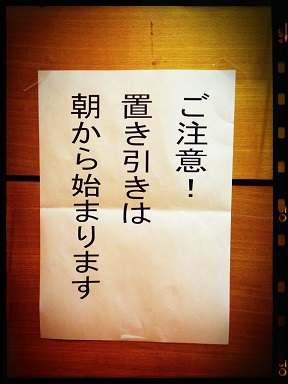 ご注意！
置き引きは
朝から始まります